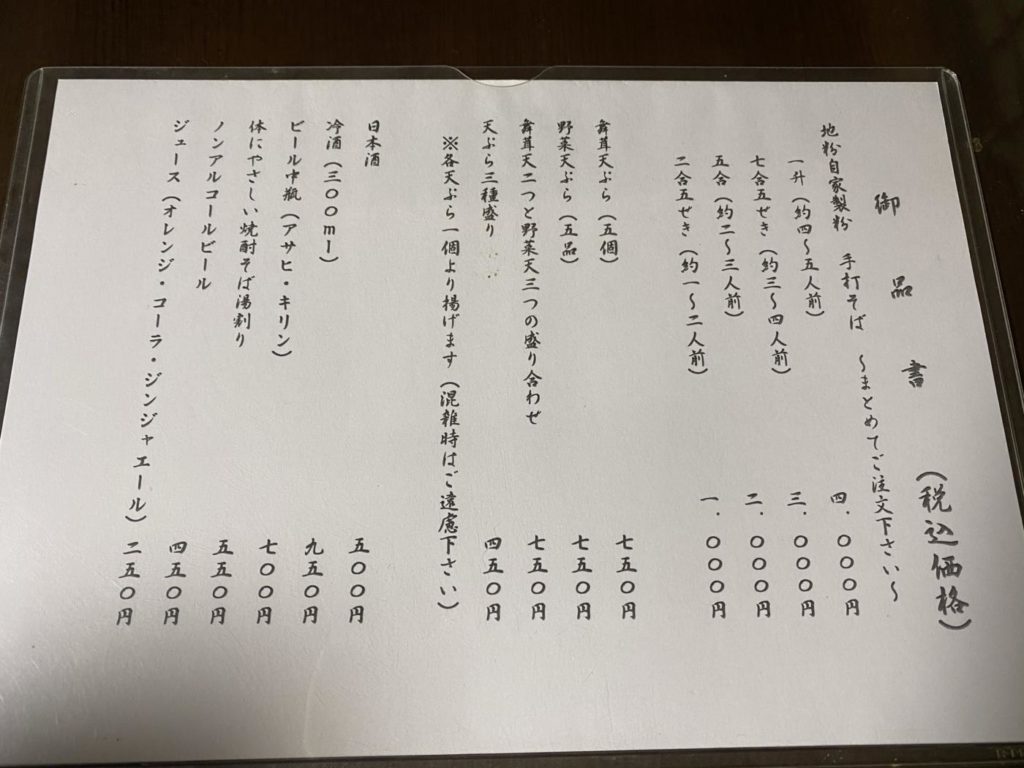 御品書 (税込価格)
地粉自家製粉 手打そば ～まとめてご注文下さい～
一升(約四～五人前) 四.〇〇〇円
七合五せき(約三～四人前) 三.〇〇〇円
五合(約二～三人前) 二.〇〇〇円
二合五せき(約一～二人前) 一.〇〇〇円
舞茸天ぷら(五個) 七五〇円
野菜天ぷら(五品) 七五〇円
舞茸天二つと野菜天三つの盛り合わせ 七五〇円
天ぷら三種盛り 四五〇円
※各天ぷら一個より揚げます(混雑時はご遠慮下さい)
日本酒 五〇〇円
冷酒(三〇〇ml) 九五〇円
ビール中瓶(アサヒ・キリン) 七〇〇円
体にやさしい焼酎そば湯割り 五五〇円
ノンアルコールビール 四五〇円
ジュース(オレンジ・コーラ・ジンジャエール) 二五〇円